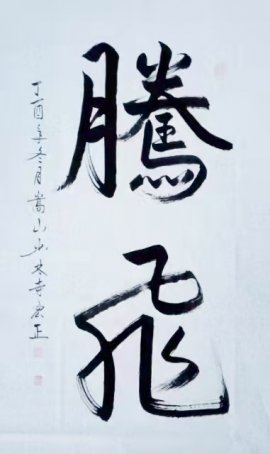 騰飛
丁酉年冬月嵩山少林寺延正